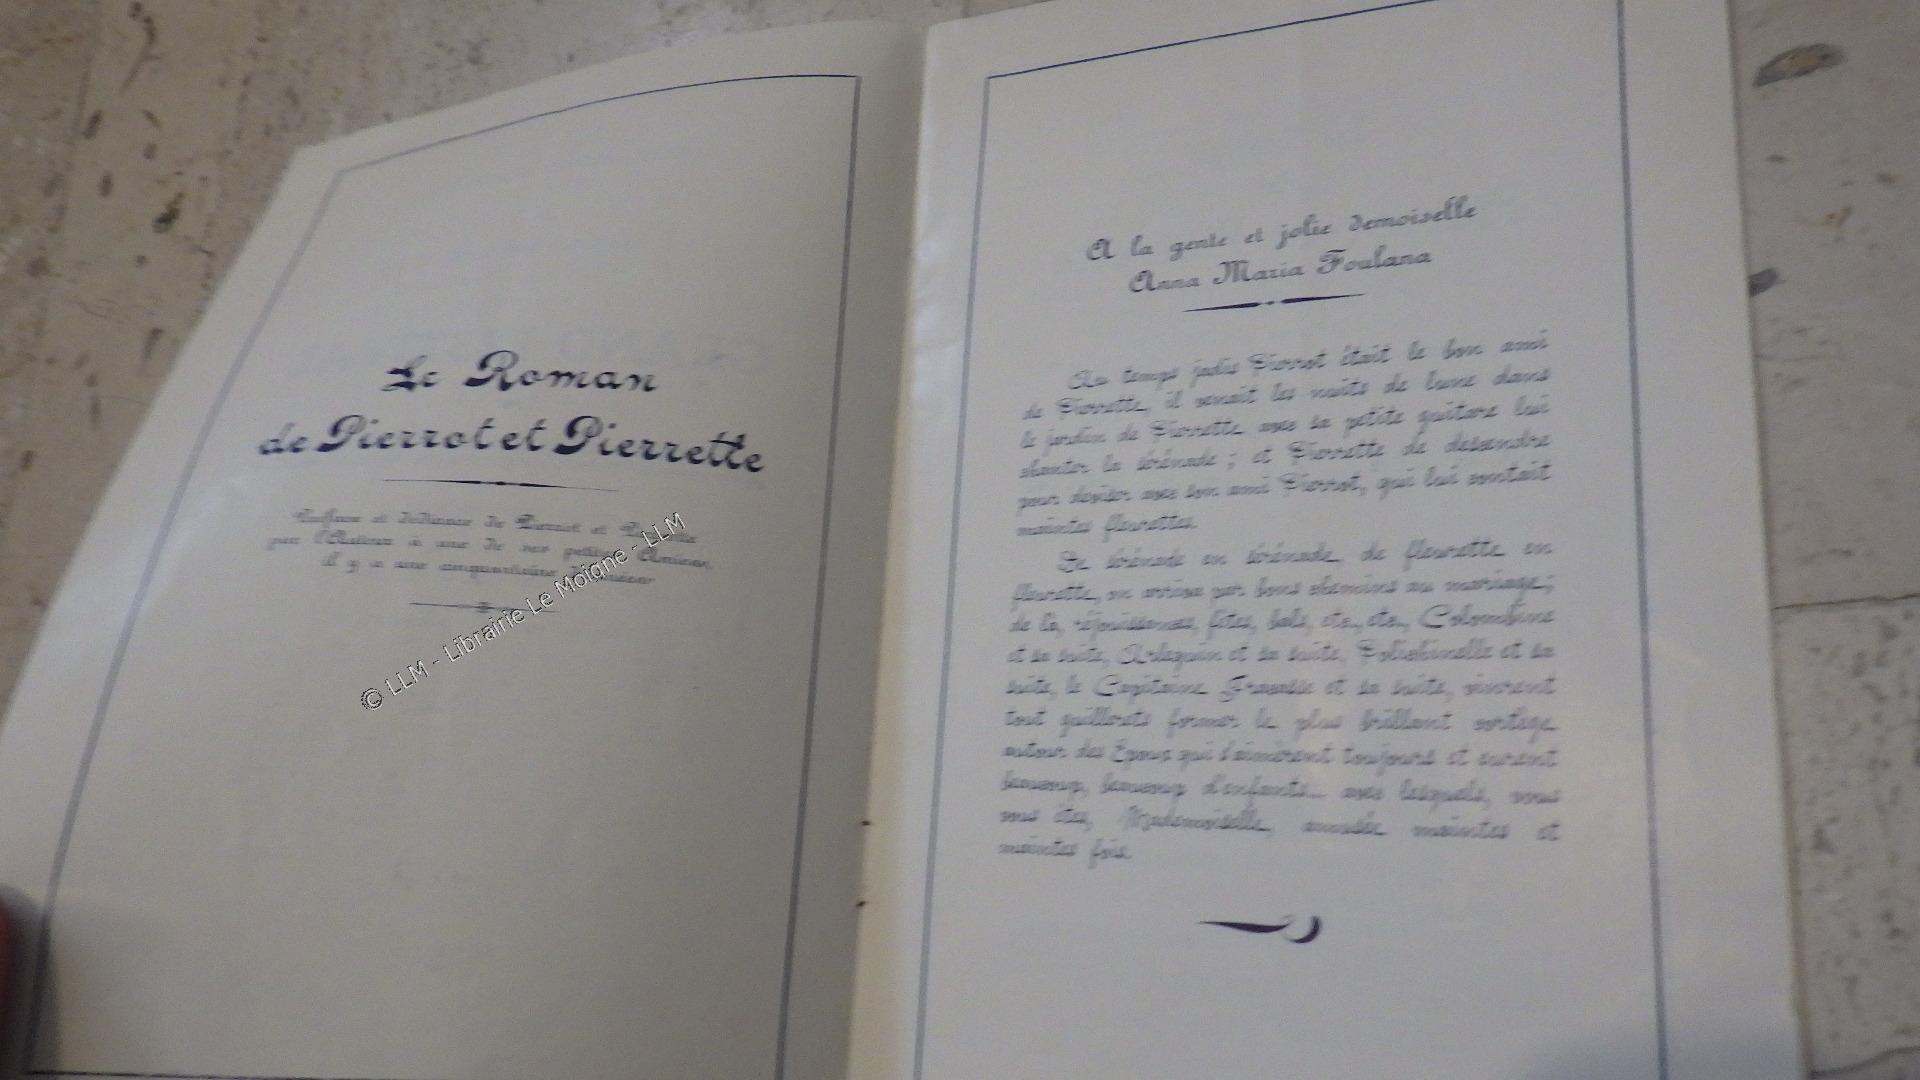 Le Roman
de Pierrot et Pierrette
Préface et dédicace de Pierrot et
par l'Auteur à une de ses petites Amies,
il y a une cinquantaine d'années
© LLM - Librairie Le Moigne - LLM
A la gente et jolie demoiselle
Anna Maria Foulana
Au temps jadis Pierrot était le bon ami
de Pierrette, il venait les nuits de lune dans
le jardin de Pierrette avec sa petite guitare lui
chanter la sérénade ; et Pierrette de descendre
pour deviser avec son ami Pierrot, qui lui contait
maintes fleurettes.
De sérénade en sérénade, de fleurette en
fleurette, on arriva par bons chemins au mariage ;
de là, réjouissances, fêtes, bals, etc., etc., Colombine
et sa suite, Arlequin et sa suite, Polichinelle et sa
suite, le Capitaine Fracasse et sa suite, vinrent
tout guillerets former le plus brillant cortège
autour des Epoux qui s'aimèrent toujours et eurent
beaucoup, beaucoup d'enfants... avec lesquels, vous
vous êtes, Mademoiselle, amusée maintes et
maintes fois.